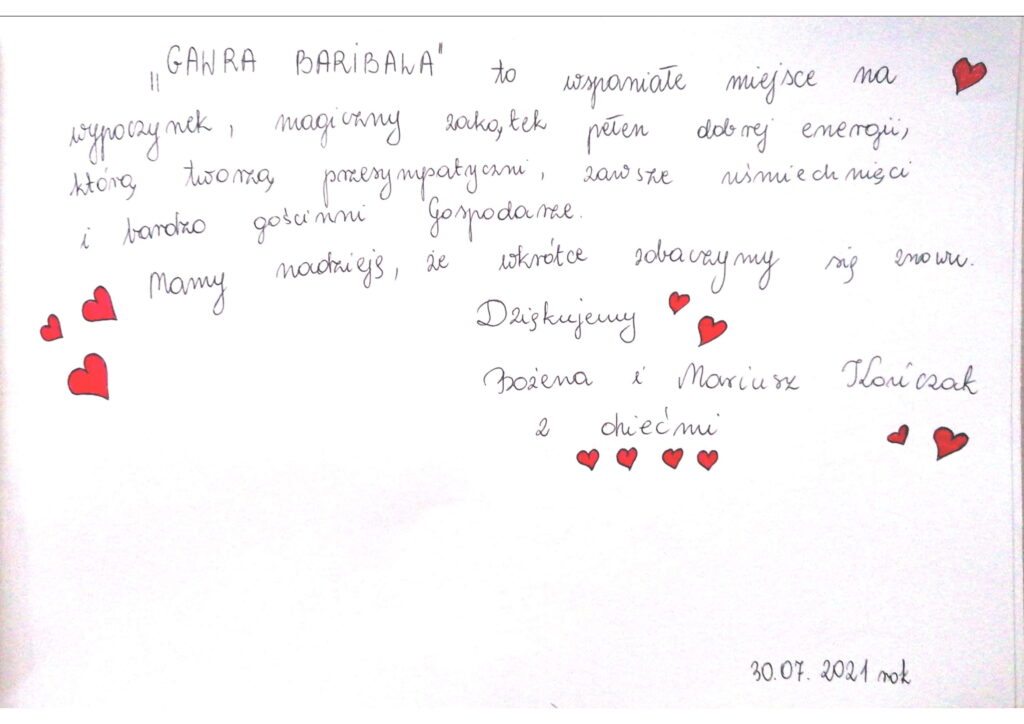 „GAWRA BARIBALA" to wspaniałe miejsce na
wypoczynek, magiczny zakątek pełen dobrej energii,
którą tworzą przesympatyczni, zawsze uśmiechnięci
i bardzo gościnni Gospodarze.
Mamy nadzieję, że wkrótce zobaczymy się znowu.
Dziękujemy
Bożena i Mariusz Kończak
z dziećmi
30.07.2021 rok